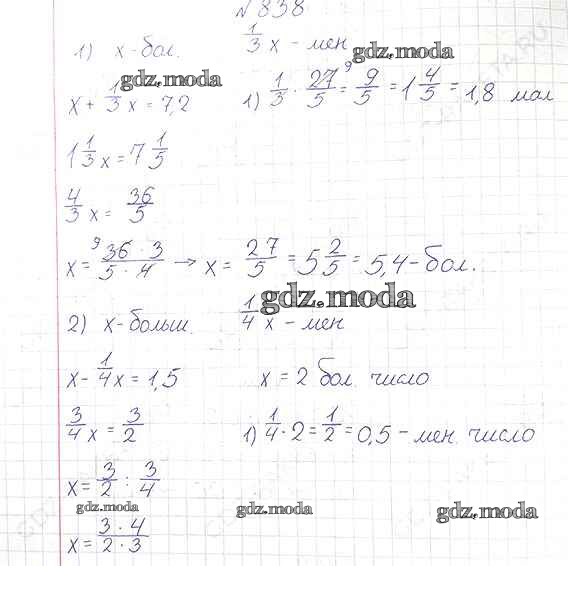 N 838
1) x - бол. 1/3 x - мен
gdz.moda
gdz.moda
x + 1/3 x = 7,2 1) 1/3 · 27/5 = 9/5 = 1 4/5 = 1,8 мал
1 1/3 x = 7 1/5
4/3 x = 36/5
x = 36 · 3 / 5 · 4 → x = 27/5 = 5 2/5 = 5,4 - бол.
gdz.moda
2) x - больш. 1/4 x - мен
x - 1/4 x = 1,5 x = 2 бол. число
3/4 x = 3/2 1) 1/4 · 2 = 1/2 = 0,5 - мен. число
x = 3/2 : 3/4
gdz.moda gdz.moda gdz.moda
x = 3 · 4 / 2 · 3